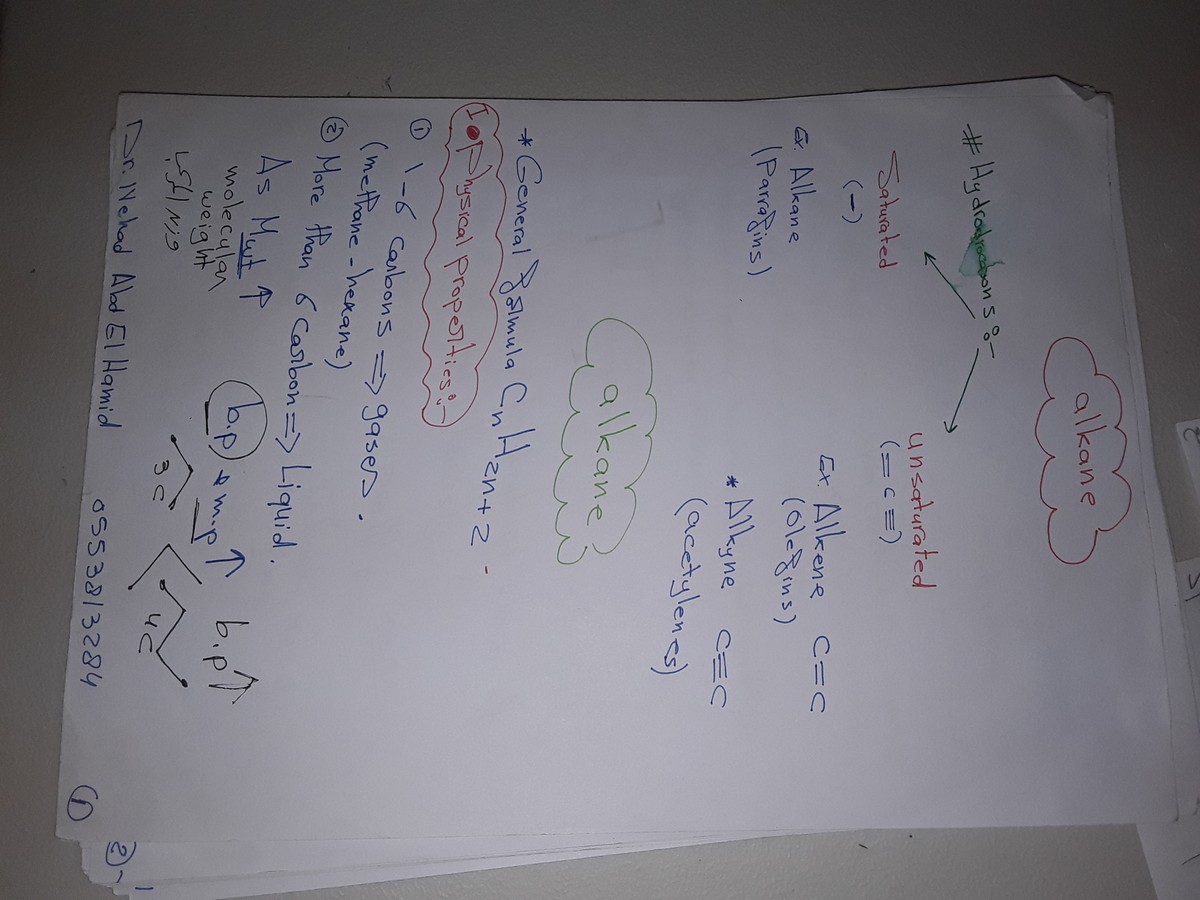 alkane
# Hydrocarbons :-
Saturated
(-)
Ex. Alkane
(Parrafins)
unsaturated
(= c ≡)
Ex. Alkene C=C
(olefins)
* Alkyne C≡C
(acetylenes)
alkane
* General formula CnH2n+2 -
I • Physical properties:-
① 1-6 Carbons ⇒ gases.
(methane - hexane)
② More than 6 Carbon ⇒ Liquid.
As Mwt ↑ b.p & m.p ↑ b.p ↑
molecular
weight
3C
4C
Dr. Nehad Abd El Hamid 0553813284
①
②